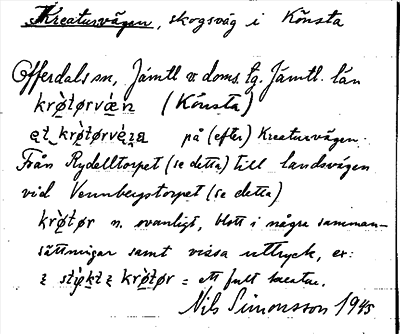 Kreatursvägen, skogsväg i Könsta
Offerdals sn, Jämtl v. doms. tg. Jämtl. län
krø̀tørvæ̀n (Könsta)
på (efter) Kreatursvägen.
Från Rydelltorpet (se detta) till landsvägen
vid Vennbergstorpet (se detta)
krø̀tør n. ovanligt, blott i några samman-
sättningar samt vissa uttryck, ex:
krø̀tør = ett fult kreatur.
Nils Simonsson 1945